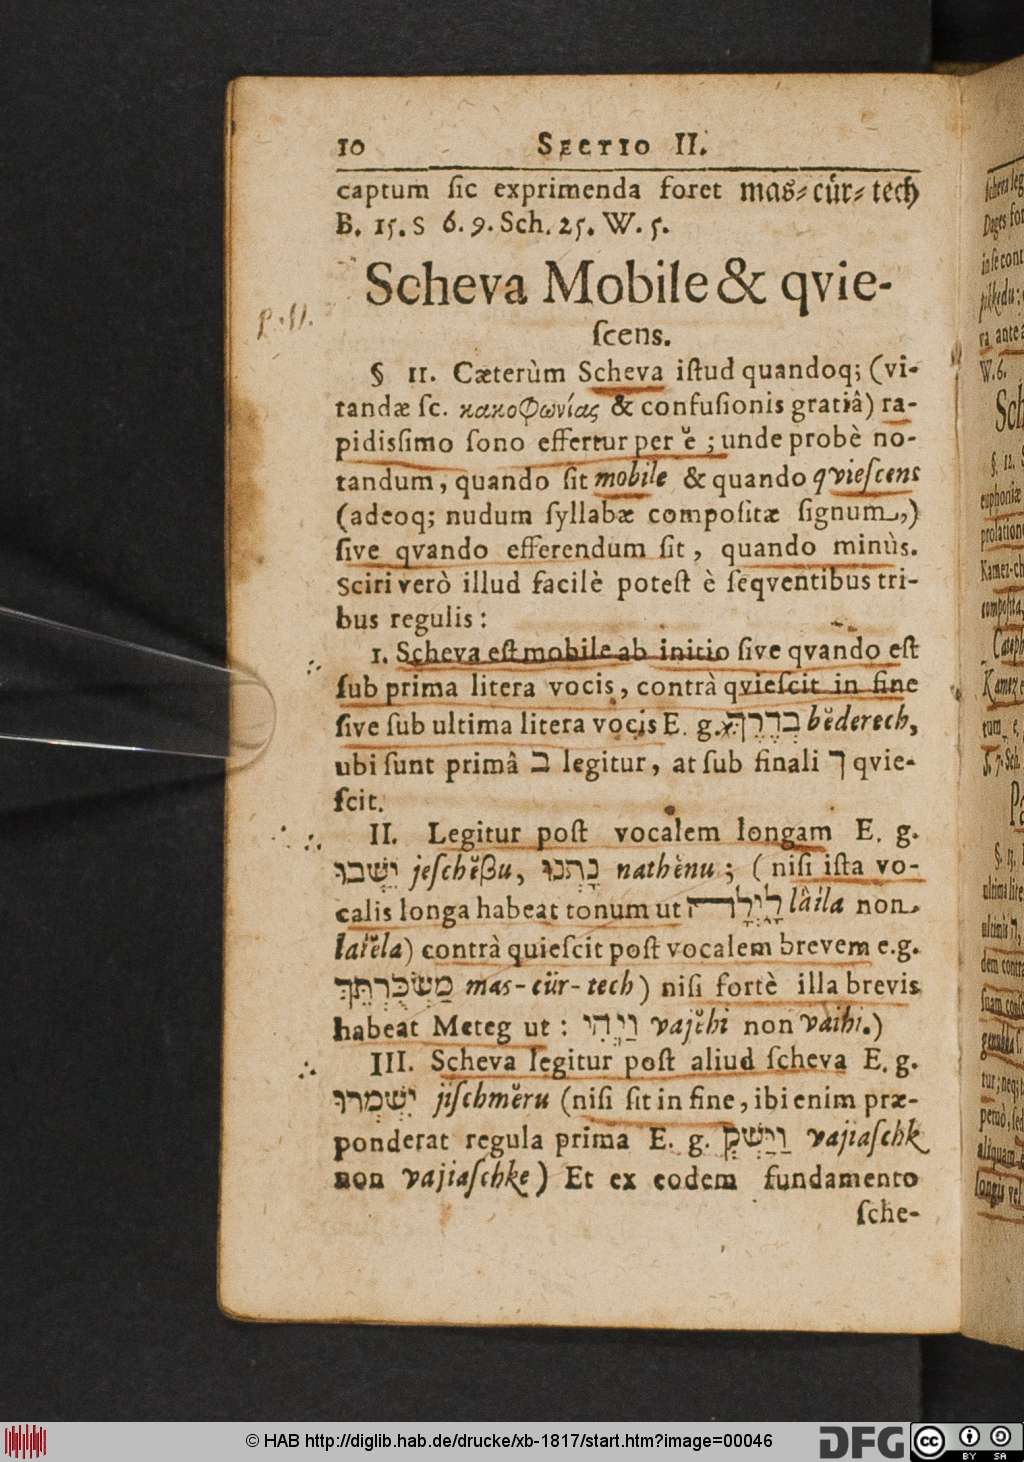 10 SECTIO II.
captum sic exprimenda foret mas-cür-tech
B. 15. S 6. 9. Sch. 25. W. 5.
Scheva Mobile & qvie-
scens.
§ 11. Cæterùm Scheva istud quandoq; (vi-
tandæ sc. κακοφωνίας & confusionis gratiâ) ra-
pidissimo sono effertur per ĕ; unde probè no-
tandum, quando sit mobile & quando qviescens
(adeoq; nudum syllabæ compositæ signum,)
sive qvando efferendum sit, quando minùs.
Sciri verò illud facilè potest è seqventibus tri-
bus regulis:
1. Scheva est mobile ab initio sive qvando est
sub prima litera vocis, contrà qviescit in fine
sive sub ultima litera vocis E. g. בְּדֶרֶךְ bĕderech,
ubi sunt primâ ב legitur, at sub finali ך qvie-
scit.
II. Legitur post vocalem longam E. g.
יֵשְׁבוּ jeschĕßu, נָתְנוּ nathĕnu; (nisi ista vo-
calis longa habeat tonum ut לָיְלָה lâila non
laiĕla) contrà quiescit post vocalem brevem e.g.
מַשְׂכֻּרְתֵּךְ mas-cür-tech) nisi fortè illa brevis
habeat Meteg ut: וַיְהִי vajĕhi non vaihi.)
III. Scheva legitur post aliud scheva E. g.
יִשְׁמְרוּ jischmĕru (nisi sit in fine, ibi enim præ-
ponderat regula prima E. g. וַיַּשְׁקְ vajiaschk
non vajiaschke) Et ex eodem fundamento
sche-
© HAB http://diglib.hab.de/drucke/xb-1817/start.htm?image=00046
DFG
cc BY SA